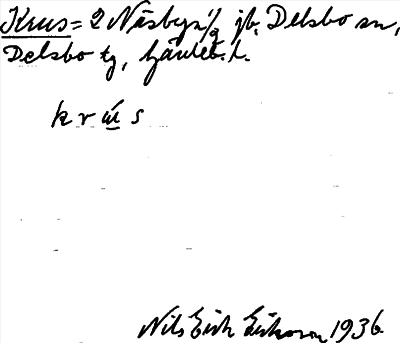 Krus = 2 Näsbyn 1/2 jb. Delsbo sn,
Delsbo tg, Gävleb. l.
k r u s
Nils Erik Eriksson 1936